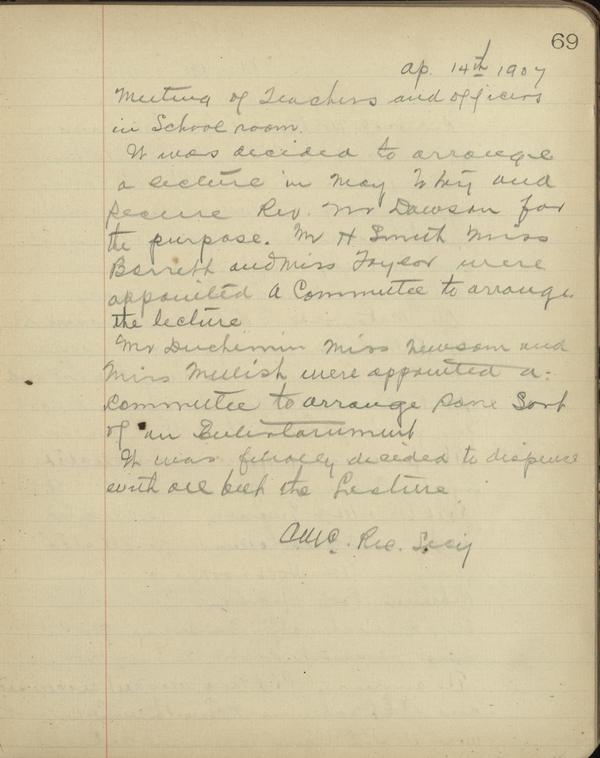 69
Ap. 14th 1907
Meeting of Teachers and officers
in School room.
It was decided to arrange
a lecture in May and
secure Rev. Mr Dawson for
the purpose. Mr H Smith Miss
Barrett and Miss Taylor were
appointed a Committee to arrange
the lecture
Mr Duchemin Miss Newsom and
Miss Mellish were appointed a
committee to arrange some Sort
of an Entertainment
It was finally decided to dispense
with all but the Lecture
Rec. Secy